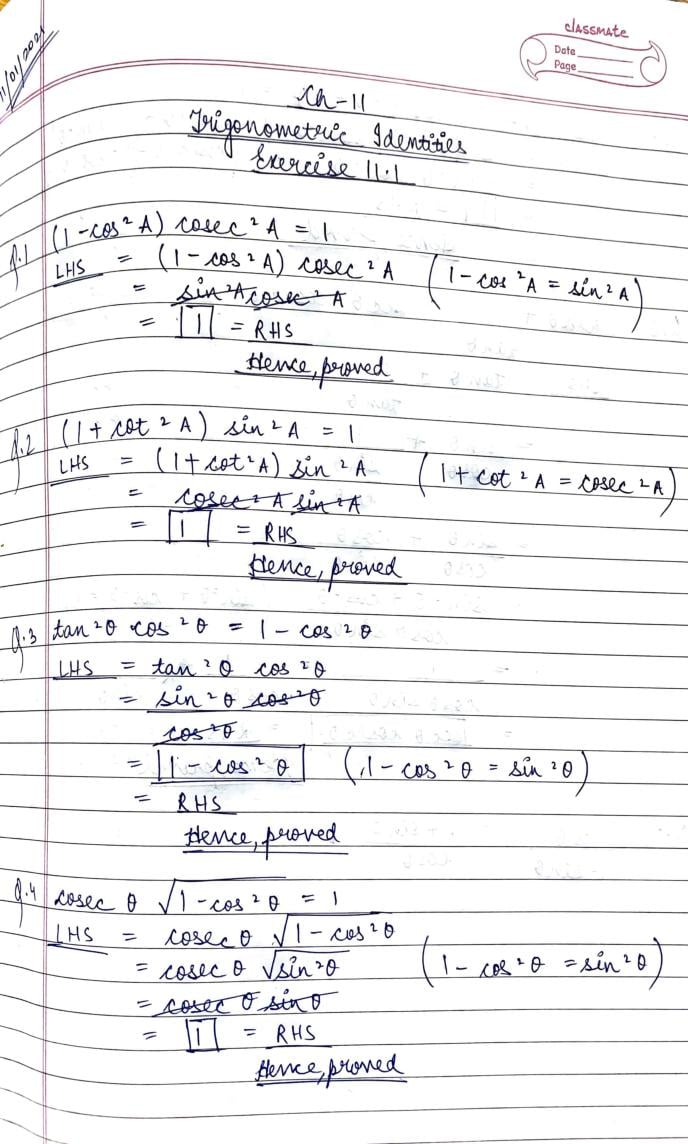 classmate
Date
Page
11/01/2021
Ch-11
Trigonometric Identities
Exercise 11.1
Q.1 (1-cos²A) cosec²A = 1
LHS = (1-cos²A) cosec²A (1-cos²A = sin²A)
= sin²A cosec²A
= 1 = RHS
Hence, proved
Q.2 (1+cot²A) sin²A = 1
LHS = (1+cot²A) sin²A (1+cot²A = cosec²A)
= cosec²A sin²A
= 1 = RHS
Hence, proved
Q.3 tan²θ cos²θ = 1-cos²θ
LHS = tan²θ cos²θ
= sin²θ cos²θ
cos²θ
= 1-cos²θ (1-cos²θ = sin²θ)
= RHS
Hence, proved
Q.4 cosec θ √1-cos²θ = 1
LHS = cosec θ √1-cos²θ
= cosec θ √sin²θ (1-cos²θ = sin²θ)
= cosec θ sin θ
= 1 = RHS
Hence, proved